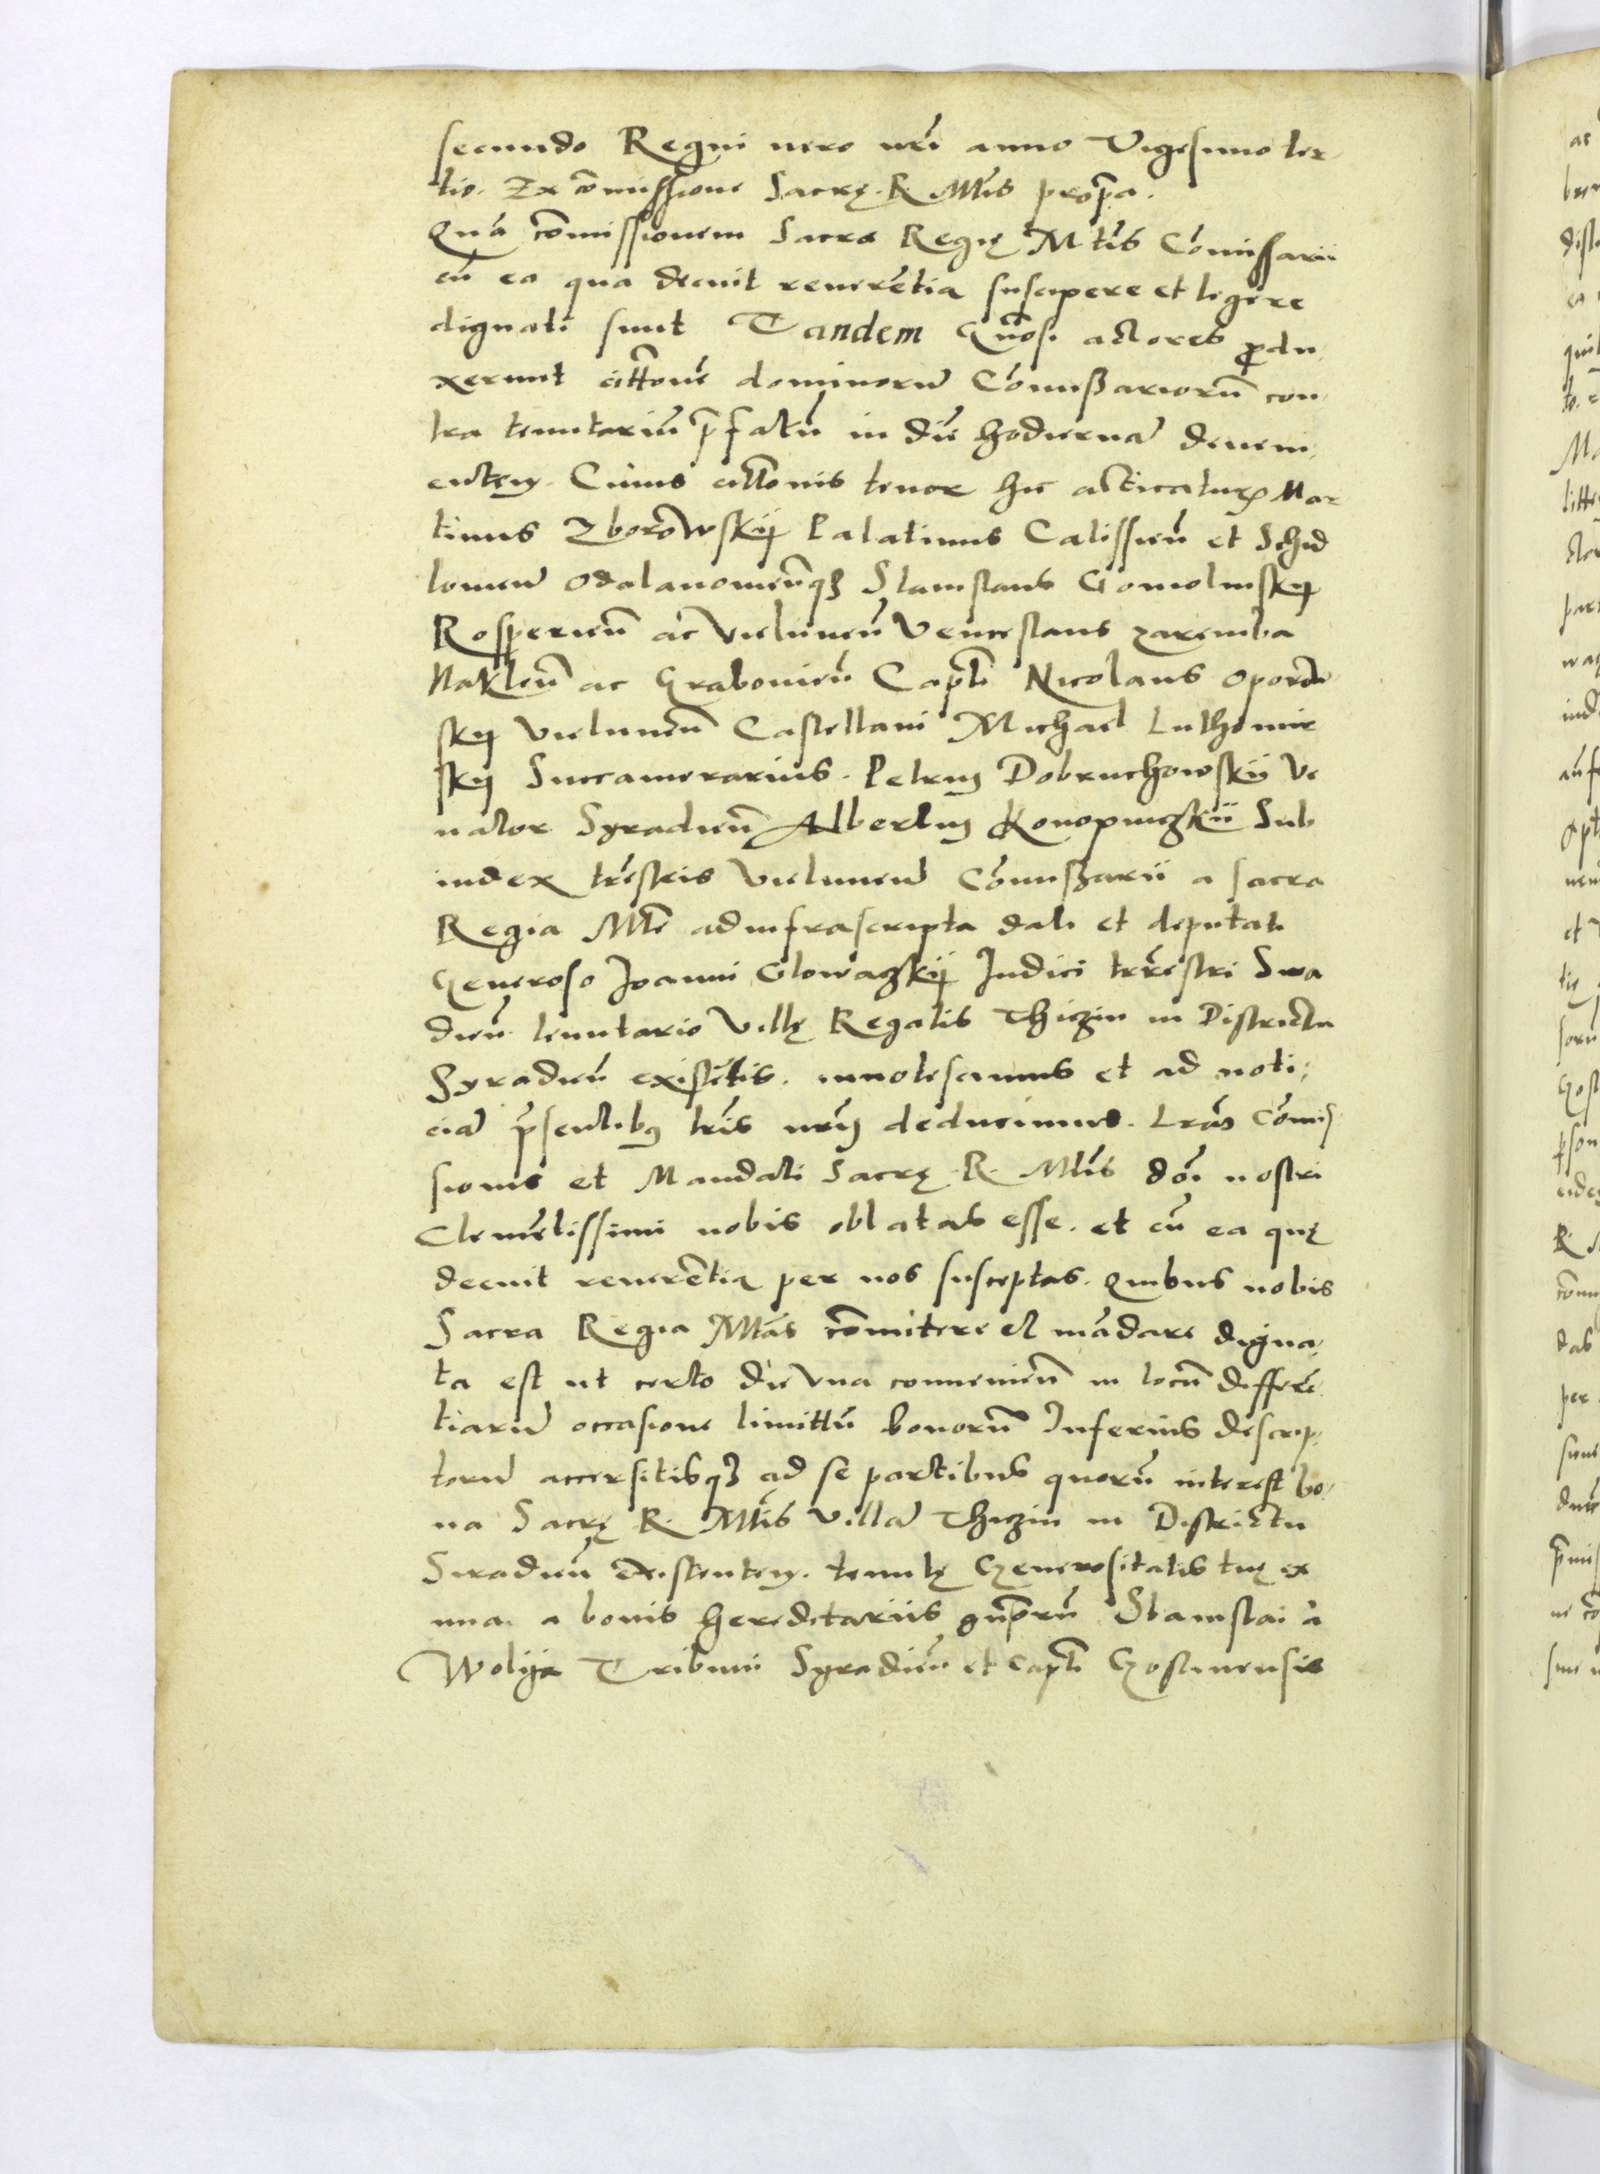 secundo Regni vero nrī anno Vigesimo ter
tio. Ex cōmissione Sacrę R Mtīs propā.
Quā cōmissionem Sacrę Regię Mtīs Cōmissarii
cū ea qua decuit reuerētia suscipere et legere
dignati sunt Tandem Gnōsi actores produ
xerunt cittōnē dominorū Cōmissariorū con
tra tenutariū prefatū in diē hodiernā deueni
entem. Cuius cittōnis tenor hic acticatur Mar
tinus Zborowskij Palatinus Calissień et Schid
lovień Odalanowieńqz Stanislaus Gomolinskij
Rosperień ac Vieluneń Venceslaus zaremba
Nakleń ac Grabovień Captī Nicolaus Oporow
skij Vieluneń Castellani Michael Luthomir
skij Succamerarius. Petrus Dobruchowskij Ve
nator Syradień Albertus Konopniczkii Sub
iudex trēstris Vieluneń Cōmissarii a sacra
Regia Mtē ad infrascripta dati et deputati
Generoso Joanni Glowaczkij Judici terrēstri Sira
dień tenutario Villę Regalis Thiczin in Districtu
Syradień existētis. innotescimus et ad noti
ciā prēsentibus lrīs nrīs deducimus. Lrās Cōmis
sionis et Mandati Sacrę R. Mtīs dōi nostri
Clemētissimi nobis oblatas esse. et cū ea quę
decuit reuerētia per nos susceptas. Quibus nobis
Sacra Regia Mtās cōmitere et mādare digna
ta est ut certo die vna conuenień in locū differē
tiarū occasione limittū bonorū Inferius descrip
torū accersitisqz ad se partibus quorū interest bo
na Sacrę R. Mtīs villā Thiczin in Districtu
Siradień existentem. tenutę Generositatis tuę ex
una a bonis hereditariis gnērōrū Stanislai a
Wolija Tribuni Syradień et Captī Gostinensis